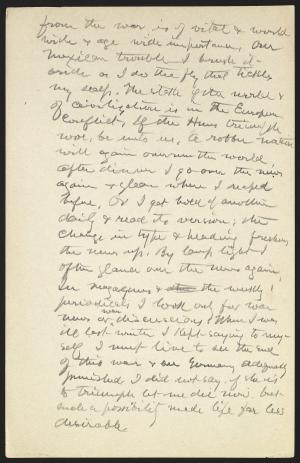 from the war is of vital & world
wide & age wide importance. Our
Mexican trouble I brush it
aside as I do the fly that tickles
my scalp. The stake of the world &
of civilization is in the European
conflict. If the Huns triumph
woe, be unto us, a robber nation
will again overrun the world.
After dinner I go over the news
again & glean where I reaped
before. Or I get hold of another
daily & read its version; the
change in type & heading freshens
the news up. By lamp light I
often glance over the news again.
In magazines & the weekly
periodicals I look out for war
news or war discussions. When I was
ill last winter I kept saying to my-
self, I must live to see the end
of this war & see Germany adequately
punished. I did not say, if she is
to triumph let me die now, but
such a possibility made life far less
desirable.